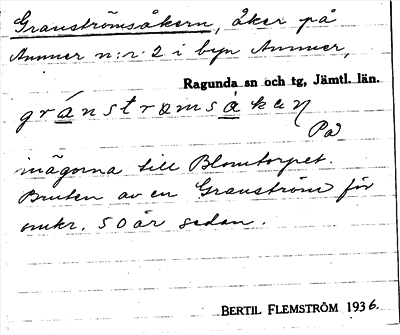 Granströmsåkern, åker på
Ammer n:r 2 i byn Ammer,
Ragunda sn och tg, Jämtl. län.
gránstrɷmsàkaɳ
På
inägorna till Blomtorpet.
Bruten av en Granström för
omkr. 50 år sedan.
BERTIL FLEMSTRÖM 1936.